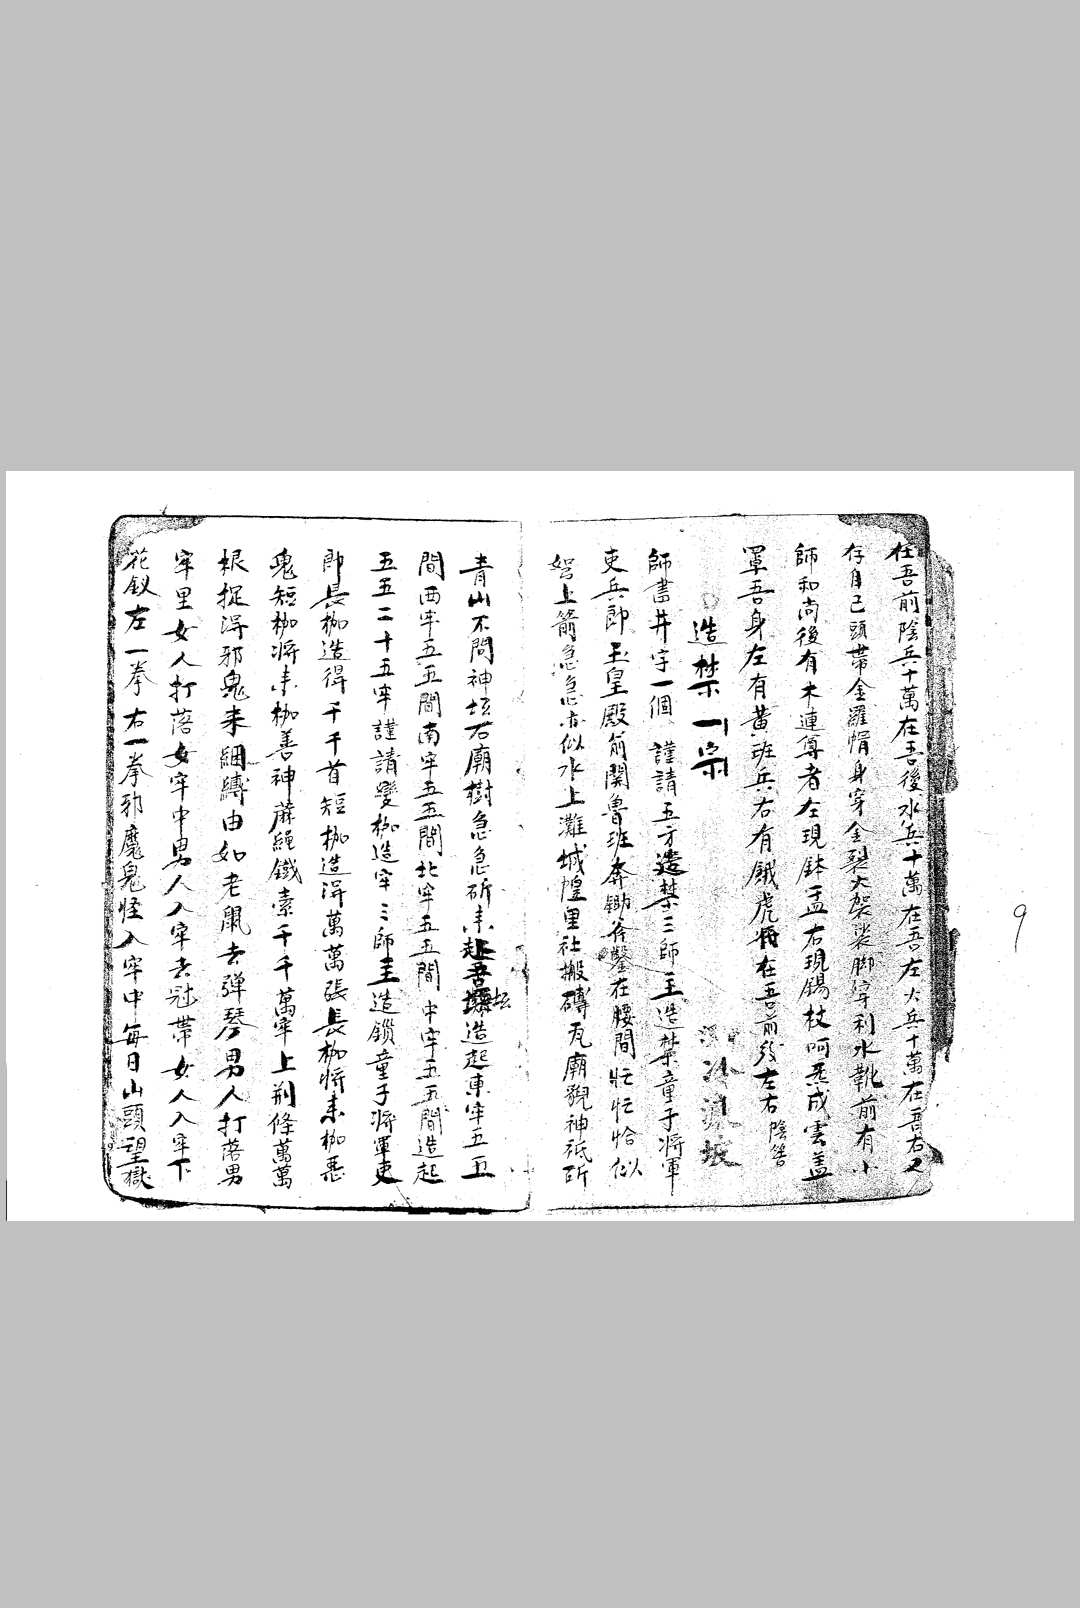 在吾前陰兵十萬在吾後水兵十萬在吾左火兵十萬在吾右又
存自己頭帶金羅帽身穿金裂大袈裟脚穿利水靴前有小
師和尚後有木連尊者左現鉢盂右現錫杖呵炁成雲蓋
罩吾身左有黃班兵右有餓虎將在吾前後左右陰答
造禁一宗
師書井字一個 謹請五方造禁三師主造禁童子將軍
吏兵郎玉皇殿前関魯班奔鋤斧鑿在腰間忙忙恰似
弩上箭急急亦似水上灘城惶里社搬磚瓦廟貌神祇斫
青山不問神坛右廟樹急急斫来起吾壇坛造起東牢五五
間西牢五五間南牢五五間北牢五五間中牢五五間造起
五五二十五牢謹請變枷造牢三師主造鎖童子將軍吏
郎長枷造得千千首短枷造淂萬萬張長枷將来枷悪
鬼短枷將来枷善神蔴繩鐵索千千萬牢上荆條萬萬
根捉淂邪鬼来綑縛由如老鼠去弹琴男人打落男
牢里女人打落女牢中男人入牢去冠帶女人入牢下
花釵左一拳右一拳邪魔鬼怪入牢中每日山頭望獄
9